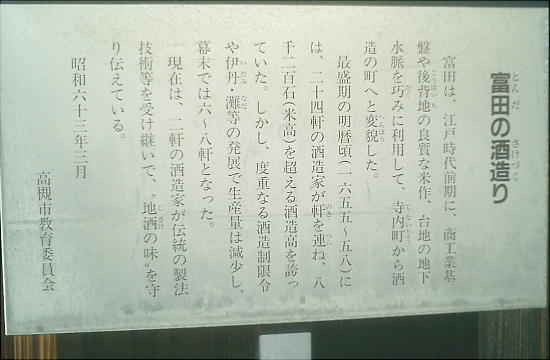 富田の酒造り
とんだ さけづく
富田は、江戸時代前期に、商工業基
盤や後背地の良質な米作、台地の地下
水脈を巧みに利用して、寺内町から酒
造の町へと変貌した。
最盛期の明暦頃(一六五五～五八)に
は、二十四軒の酒造家が軒を連ね、八
千二百石(米高)を超える酒造高を誇っ
ていた。しかし、度重なる酒造制限令
や伊丹・灘等の発展で生産量は減少し、
幕末では六～八軒となった。
現在は、二軒の酒造家が伝統の製法
技術等を受け継いで、〝地酒の味〟を守
り伝えている。
昭和六十三年三月
高槻市教育委員会